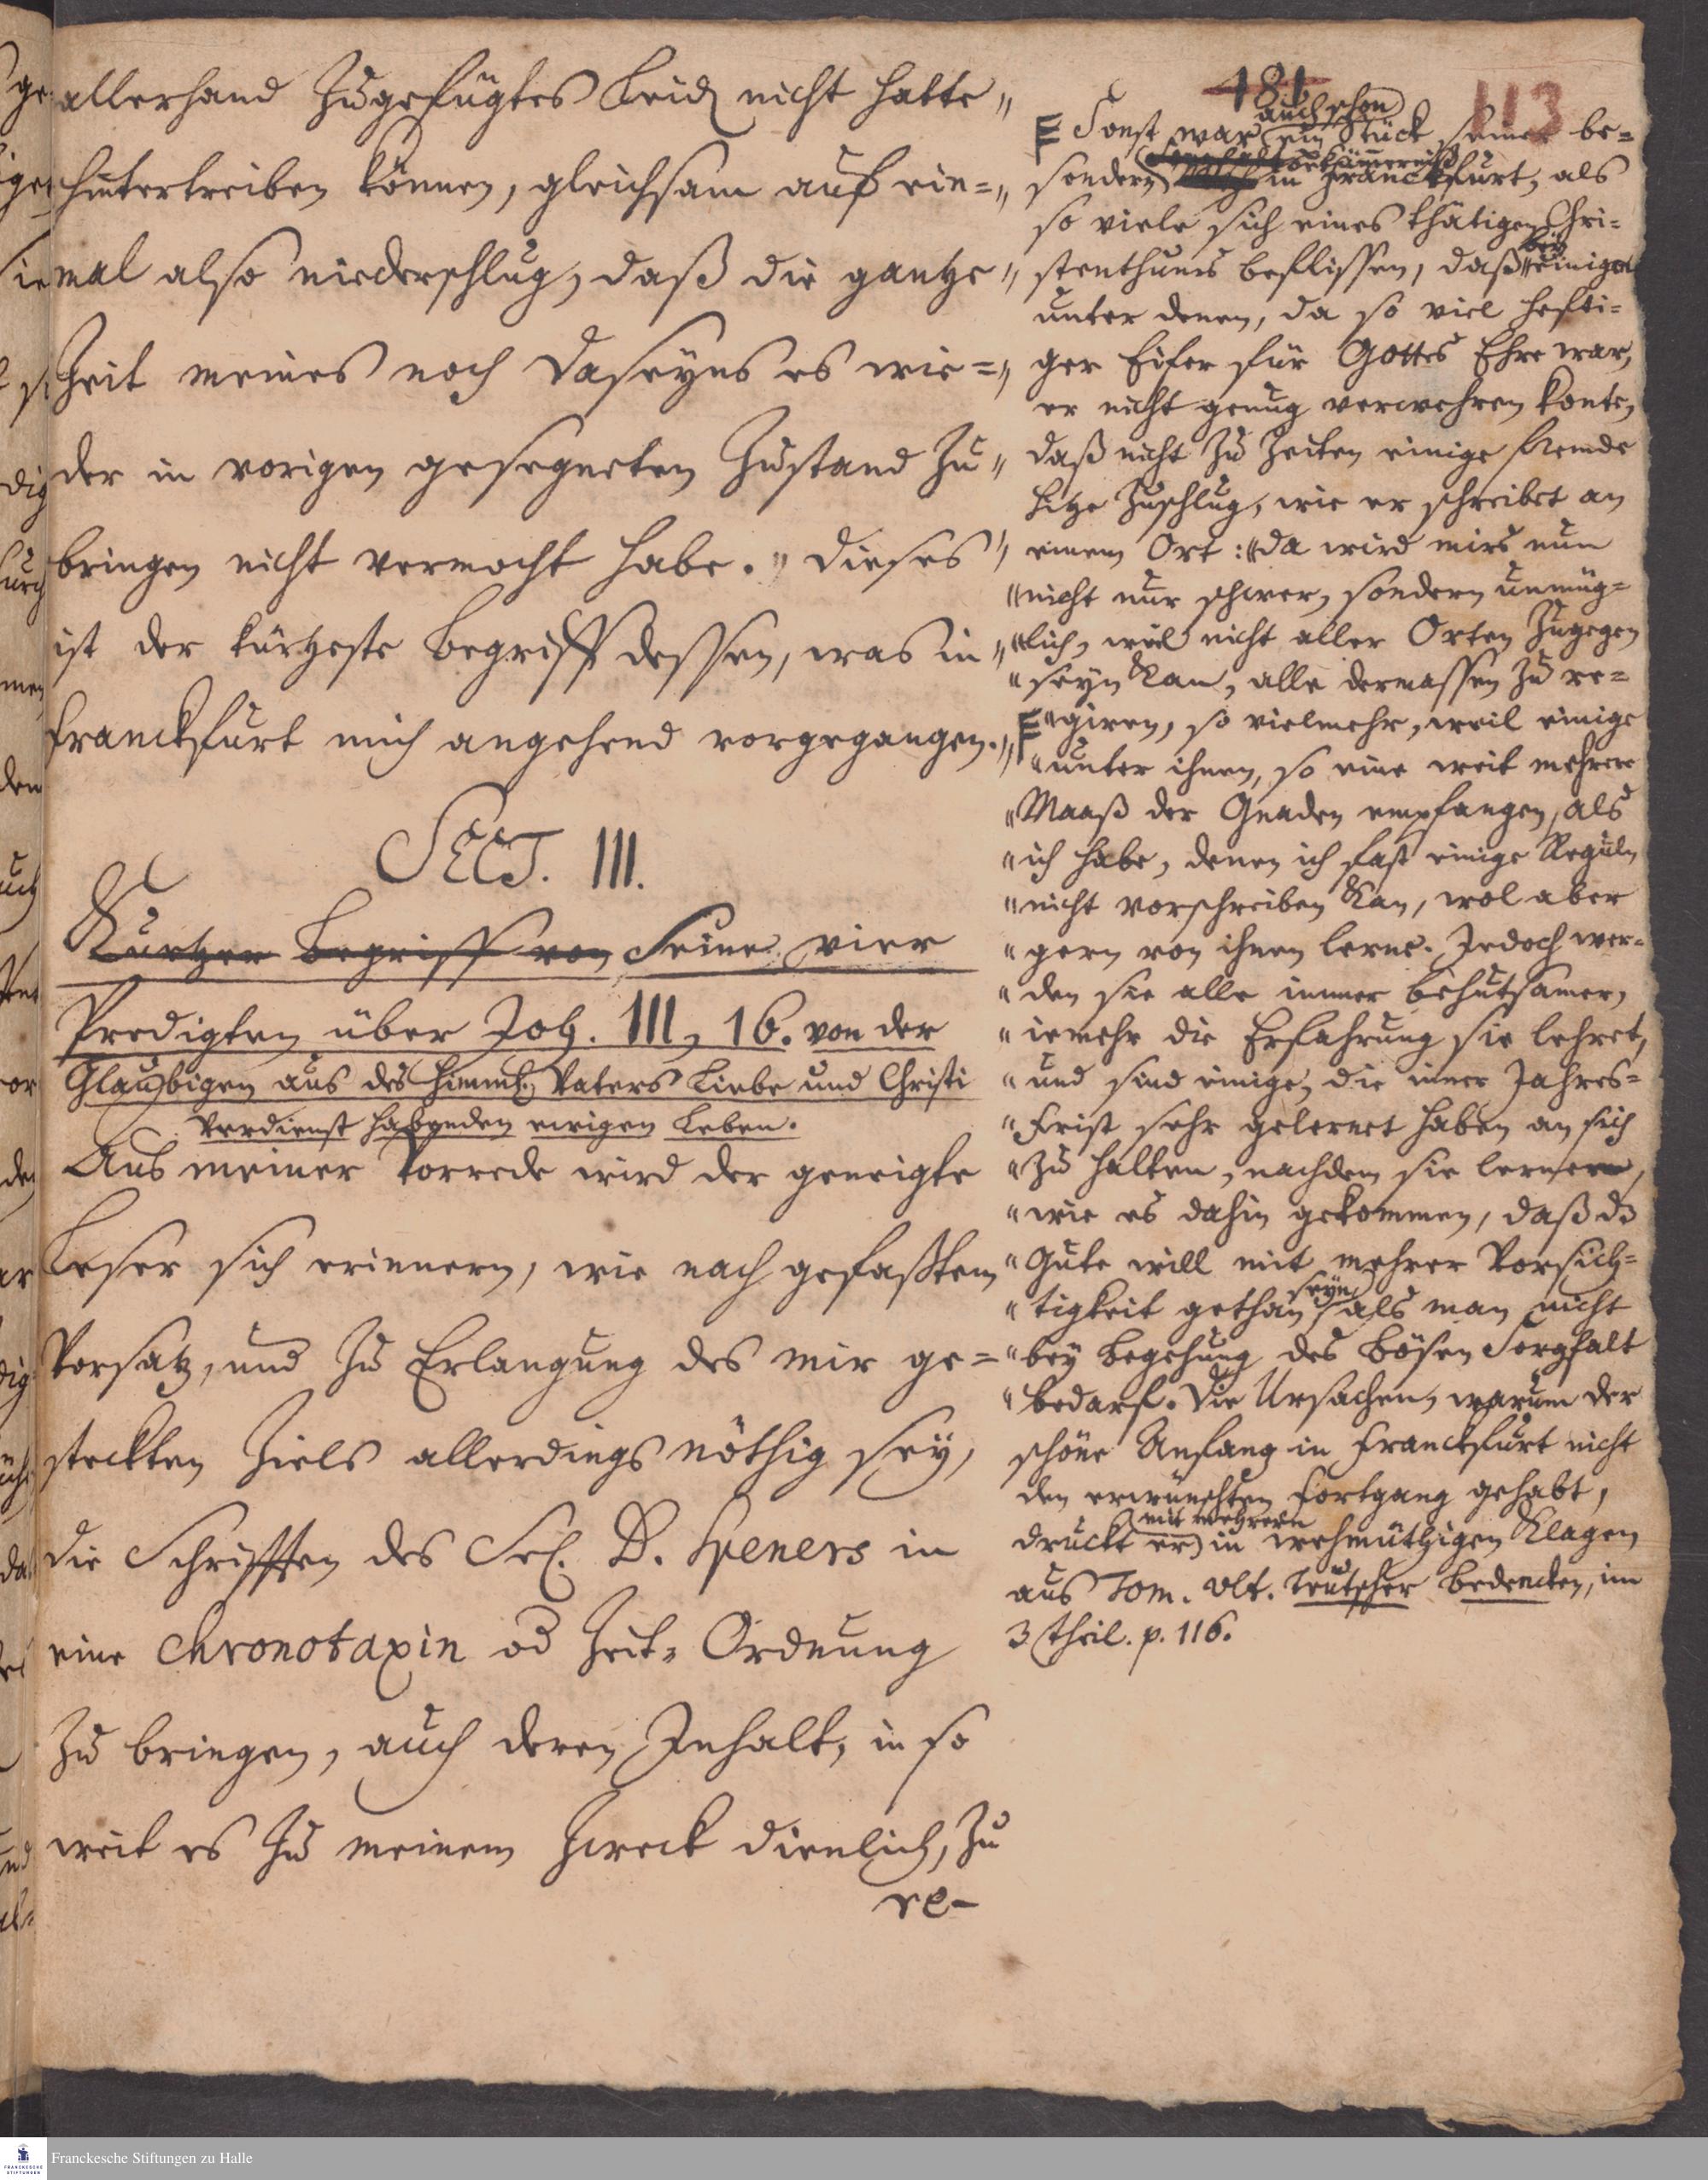 allerhand zugefügtes Leid nicht hatte „
hintertreiben können, gleichsam auf ein= „
mal also niederschlug, daß die gantze „
Zeit meines noch daseyns es wie= „
der in vorigen gesegneten Zustand zu „
bringen nicht vermocht habe. „ Dieses „
ist der kürtzeste Begriff dessen, was in „
Franckfurt mich angehend vorgegangen. „
SECT. III.
Kurtzer Begriff von Seine vier
Predigten über Joh. III, 16. von der
Glaubigen aus des himml. Vaters Liebe und Christi
Verdienst habenden ewigen Leben.
Aus meiner Vorrede wird der geneigte
Leser sich erinnern, wie nach gefaßtem
Vorsatz, und zu Erlangung des mir ge=
steckten Ziels allerdings nöthig sey,
die Schrifften des Sel. D. Speners in
eine Chronotaxin od Zeit-Ordnung
zu bringen, auch deren Inhalt, in so
weit es zu meinem Zweck dienlich, zu
re-
481
113
auch schon
F Sonst war ein Stück seiner be=
bekümmerniß
sondern in Franckfurt, als
so viele sich eines thätigen Chri=
bey
stenthums beflissen, daß einigen
unter denen, da so viel hefti=
ger Eifer für Gottes Ehre war,
er nicht genug verwehren konte,
daß nicht zu Zeiten einige fremde
Hitze zuschlug, wie er schreibet an
einem Ort: „da wird mirs nun
„nicht nur schwer, sondern unmüg=
„lich, weil nicht aller Orten zugegen
„seyn kan, alle dermassen zu re=
F „giren, so vielmehr, weil einige
„unter ihnen, so eine weit mehrere
„Maaß der Gnaden empfangen, als
„ich habe, denen ich fast einige Reguln
„nicht vorschreiben kan, wol aber
„gern von ihnen lerne. Jedoch wer=
„den sie alle immer behutsamer,
„iemehr die Erfahrung sie lehret,
„und sind einige, die inner Jahres=
„Frist sehr gelernet haben an sich
„zu halten, nachdem sie lernen,
„wie es dahin gekommen, daß ds
„Gute will mit mehrer Vorsich=
seyn
„tigkeit gethan, als man nicht
„bey Begehung des bösen Sorgfalt
„bedarf. Die Ursachen, warum der
schöne Anfang in Franckfurt nicht
den erwünschten Fortgang gehabt,
mit mehrern
druckt er in wehmüthigen Klagen
aus Tom. Ult. Teutscher Bedencken, im
3 theil. p. 116.
Franckesche Stiftungen zu Halle